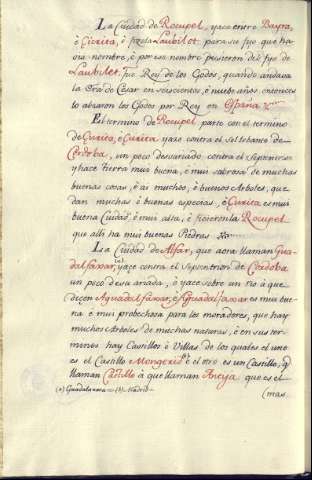 La Ciudad de Rocupel, yace entre Bayra,
è Curita, è fizola Laubilot para su fijo que ha-
via nombre, è por esa nombre pusieron del fijo de
Laubilet, fue Rey de los Godos, quando andava
la Era de Cesar en seiscientos, è nuebe años entonces
lo alzaron los Godos por Rey en España
El termino de Rocupel parte con el termino
de Curita, è Curita yaze contra el Sol lebante de
Cordoba, un poco desviado contra el Septentrion
y hace tierra mui buena, è mui sabrosa de muchas
buenas cosas, è ai muchos, è buenos Arboles, que
dan muchas è buenas especias, è Curita es mui
buena Ciudad, è mui alta, è ficieronla Rocupel
que alli ha mui buenas Piedras
La Ciudad de Alfar, que aora llaman Gua-
dalfaxar, (a) yaçe contra el Septentrion de Cordoba
un poco desviada, è yace sobre un rio à que
diçen Aguadalfaxar, è Guadalfaxar es mui bue-
na è mui probechosa para los moradores, que hay
muchos Arboles de muchas naturas, è en sus ter-
minos hay Castillos è Villas, de los quales el uno
es el Castillo Mongerid è el otro es un Castillo, q
llaman Castillo à que llaman Aneya, que es el
(a) Guadalaxara = (b) Madrid
(mas